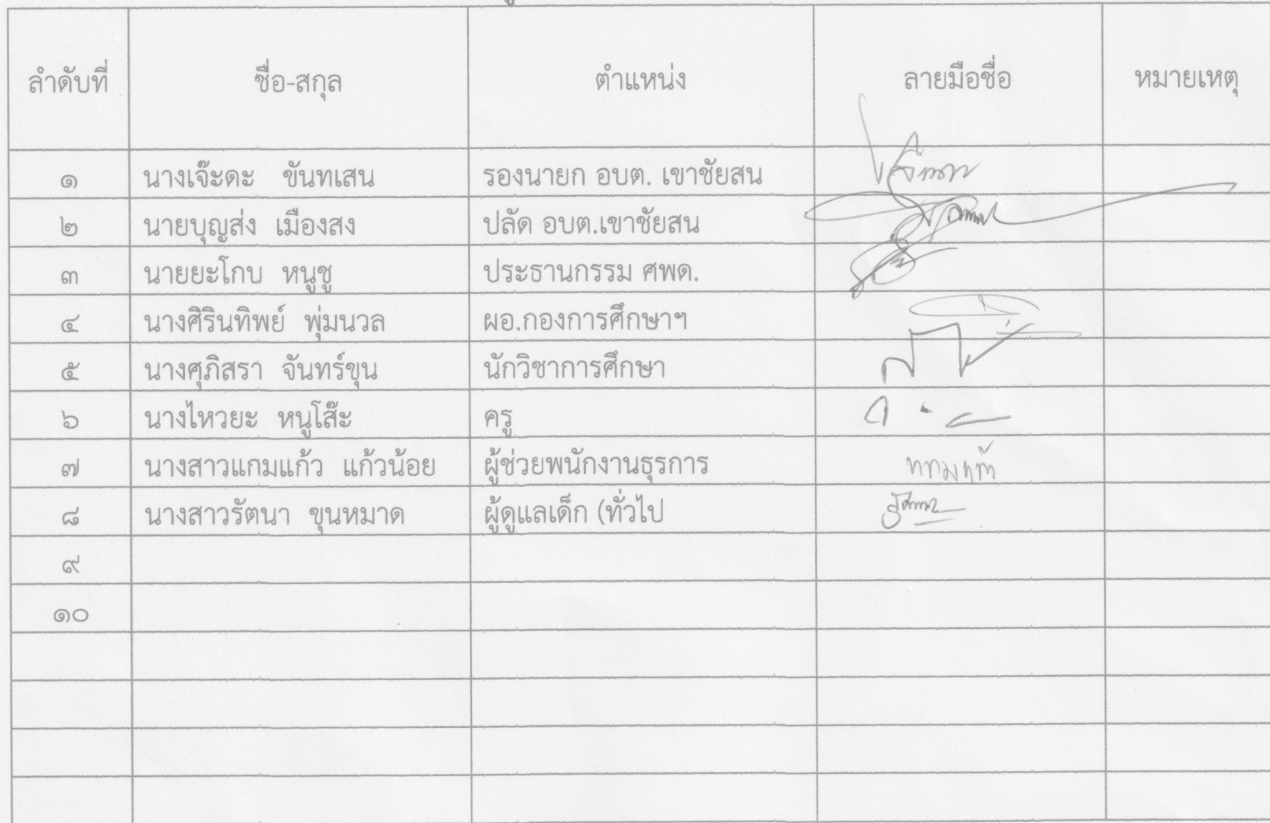 ลำดับที่ ชื่อ-สกุล ตำแหน่ง ลายมือชื่อ หมายเหตุ
๑ นางเจ๊ะดะ ขันทเสน รองนายก อบต. เขาชัยสน
๒ นายบุญส่ง เมืองสง ปลัด อบต.เขาชัยสน
๓ นายยะโกบ หนูชู ประธานกรรม ศพด.
๔ นางศิรินทิพย์ พุ่มนวล ผอ.กองการศึกษาฯ
๕ นางศุภิสรา จันทร์ขุน นักวิชาการศึกษา
๖ นางไหวยะ หนูโส๊ะ ครู
๗ นางสาวแกมแก้ว แก้วน้อย ผู้ช่วยพนักงานธุรการ
๘ นางสาวรัตนา ขุนหมาด ผู้ดูแลเด็ก (ทั่วไป
๙
๑๐